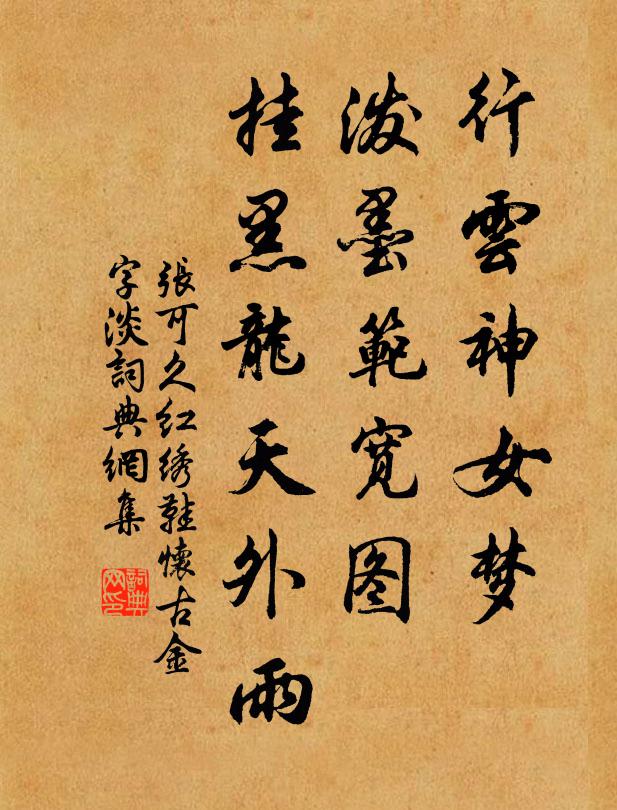 行雲神女梦
泼墨範宽图
挂黑龍天外雨
張可久红绣鞋懷古金
字淡詞典網集
詞典
网印